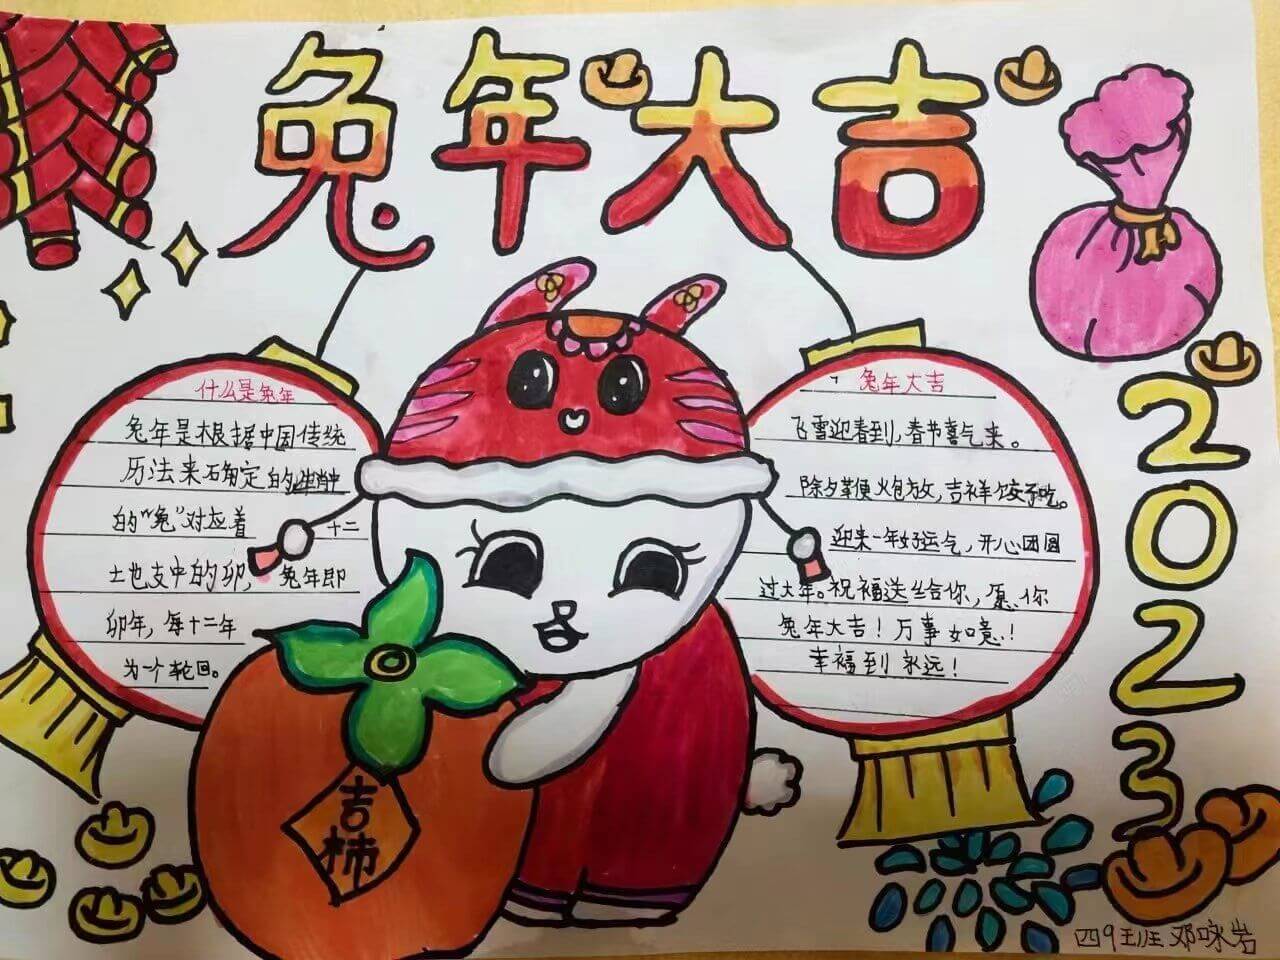 兔年大吉
什么是兔年
兔年是根据中国传统
历法来确定的生肖中
的“兔”对应着 十二
土也支中的卯, 兔年即
卯年, 每十二年
为一个轮回。
兔年大吉
飞雪迎春到, 春节喜气来。
除夕鞭炮放, 吉祥饺子吃。
迎来一年好运气, 开心团圆
过大年。祝福送给你, 愿你
兔年大吉! 万事如意!
幸福到永远!
2023
吉柿
四9班 邓咏岩